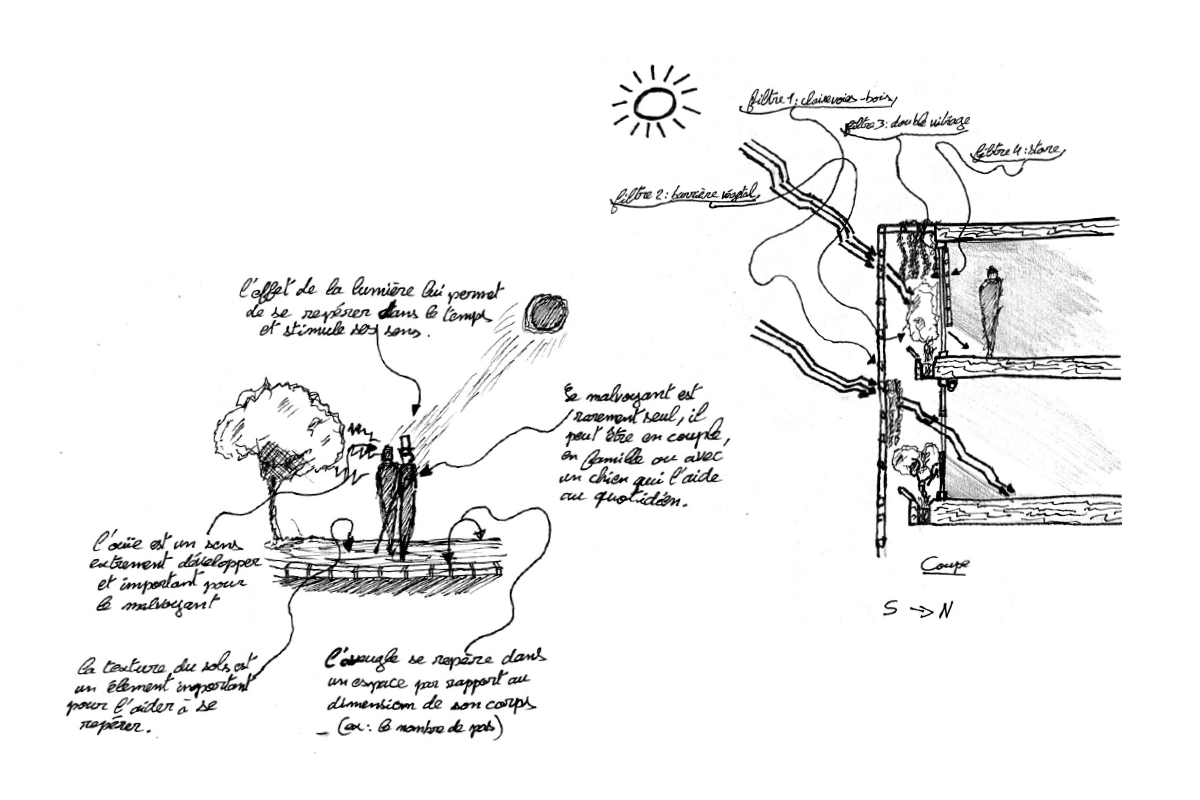 filtre 1: claire voies-bois,
filtre 3: double vitrage
filtre 4: store,
filtre 2: barrière végétal,
l'effet de la lumière lui permet
de se repérer dans le temps
et stimule ses sens.
Le malvoyant est
rarement seul, il
peut être en couple,
en famille ou avec
un chien qui l'aide
au quotidien.
l'ouïe est un sens
extrement développer
et important pour
le malvoyant
la texture du sols est
un élement important
pour l'aider à se
repérer.
l'aveugle se repère dans
un espace par rapport au
dimension de son corps
(ex: le nombre de pas)
Coupe
S → N